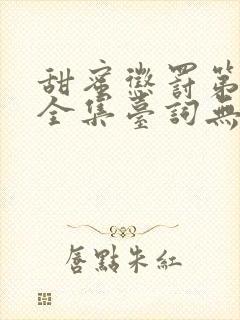 甜蜜懲罰第
全集臺詞無
唇點朱紅